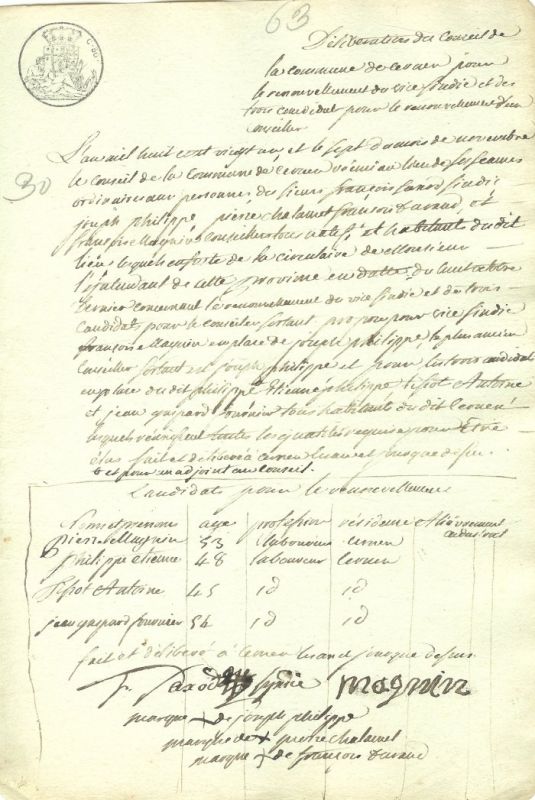 63
Déliberation du Conseil de
la commune de cernex pour
le renouvellement du vice sindic et des
trois candidat pour le renouvellement d'un
conseiller
L'an mil huit cent vingt un et le sept du mois de novembre
30
le Conseil de la Commune de cernex réuni au lieu de ses seances
ordinaires aux personnes des sieurs françois saxod sindic
joseph philippe pierre chalamel françois Durand, et
françois Magnin Conseillers tous natif et habitants du dit
lieu lesquels ensuite de la circulaire de Monsieur
l'intendant de cette province en datte du huit octobre
dernier concernant le renouvellement du vice sindic et de trois
candidat pour le conseiller sortant propose pour vice sindic
françois Magnin en place de joseph philippe le plus ancien
Conseiller sortant est joseph philippe et pour les trois candidat
en place du dit philippe Etienne philippe tissot Antoine
et jean gaspard fournier tous habitant du dit Cernex
lesquels réunissent toutes les qualités requise pour Etre
élus fait et déliberé à cernex l'an et jour que dessus.
et pour un adjoint au Conseil.
Candidats pour le renouvellement
Noms et prenoms age profession résidence
pierre Magnin 53 laboureur cernex
philippe etienne 48 laboureur cernex
tissot Antoine 45 id id
jean gaspard fournier 54 id id
fait et déliberé à cernex les an et jour que dessus.
f. Saxod syndic magnin
marque x de joseph philippe
marque de x pierre chalamel
marque x de françois Durand